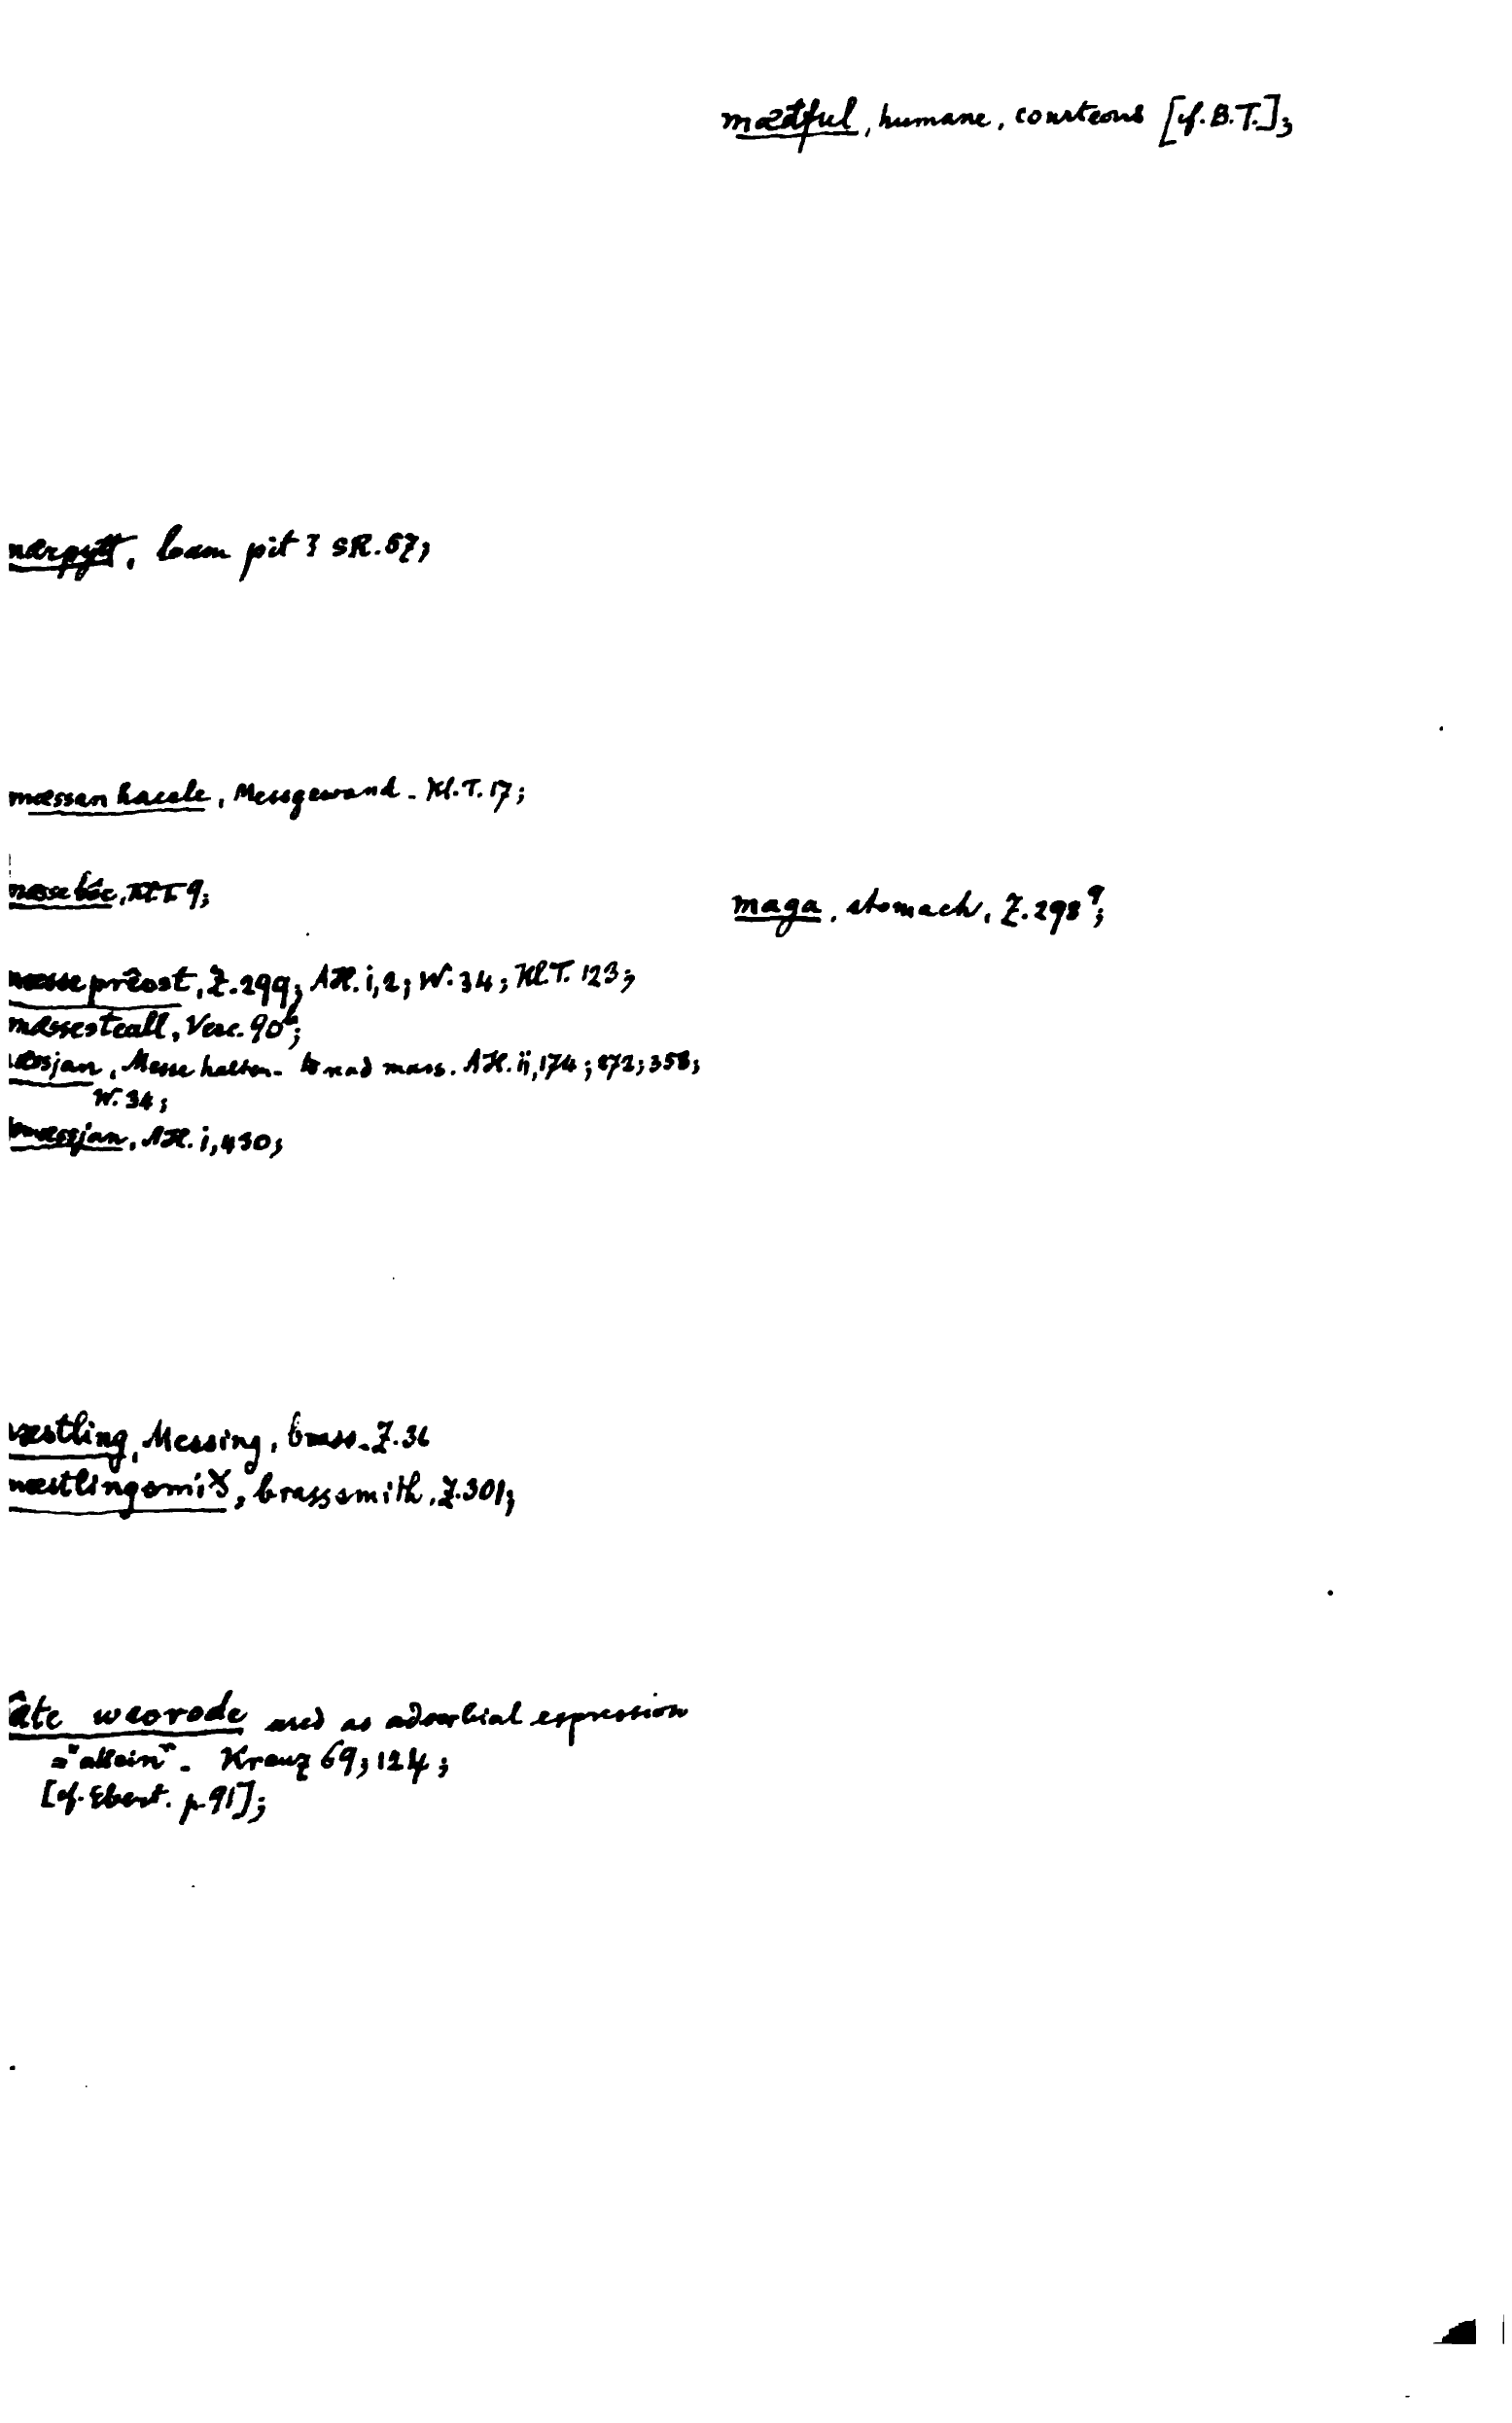 mæðful, humane, courteous [cf. B.T.];
mærpytt, loam pit? SR. 67;
mæssan hacele, Messgewand - Kl. T. 17;
mæsse bôc, Kl.T. 9;
maga, stomach, Z. 298⁹;
mæsse prêost, Z. 299; AH. i, 2; W. 34; Kl.T. 123;
mæssesteall, Verc. 90ᵇ;
mæssjan, Messe halten - to read mass. AH. ii, 174; 272; 358;
W. 34;
mæssjan, AH. i, 430;
mæstling, Messing, brass - Z. 31
mæstlingsmið, brasssmith, Z. 301;
mâte weorode used as adverbial expression
="allein". Kreuz 69; 124;
[cf. Ebert. p. 91];